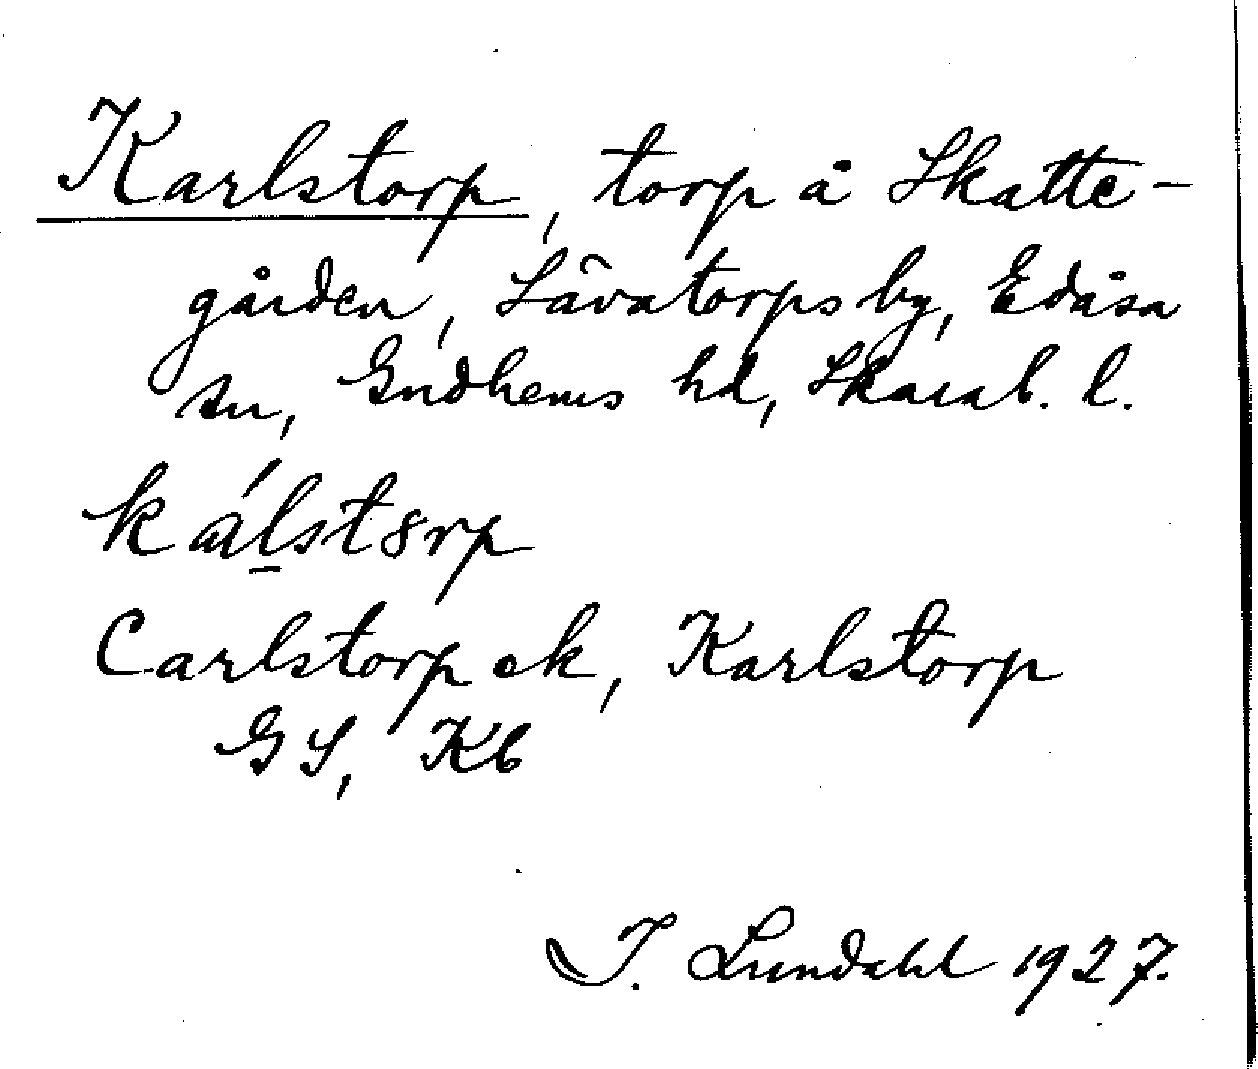 Karlstorp, torp å Skatte-
gården, Såvatorps by, Edåsa
sn, Gudhems hd, Skarab. l.
Carlstorp ek, Karlstorp
GS, Kb
I. Lundahl 1927.